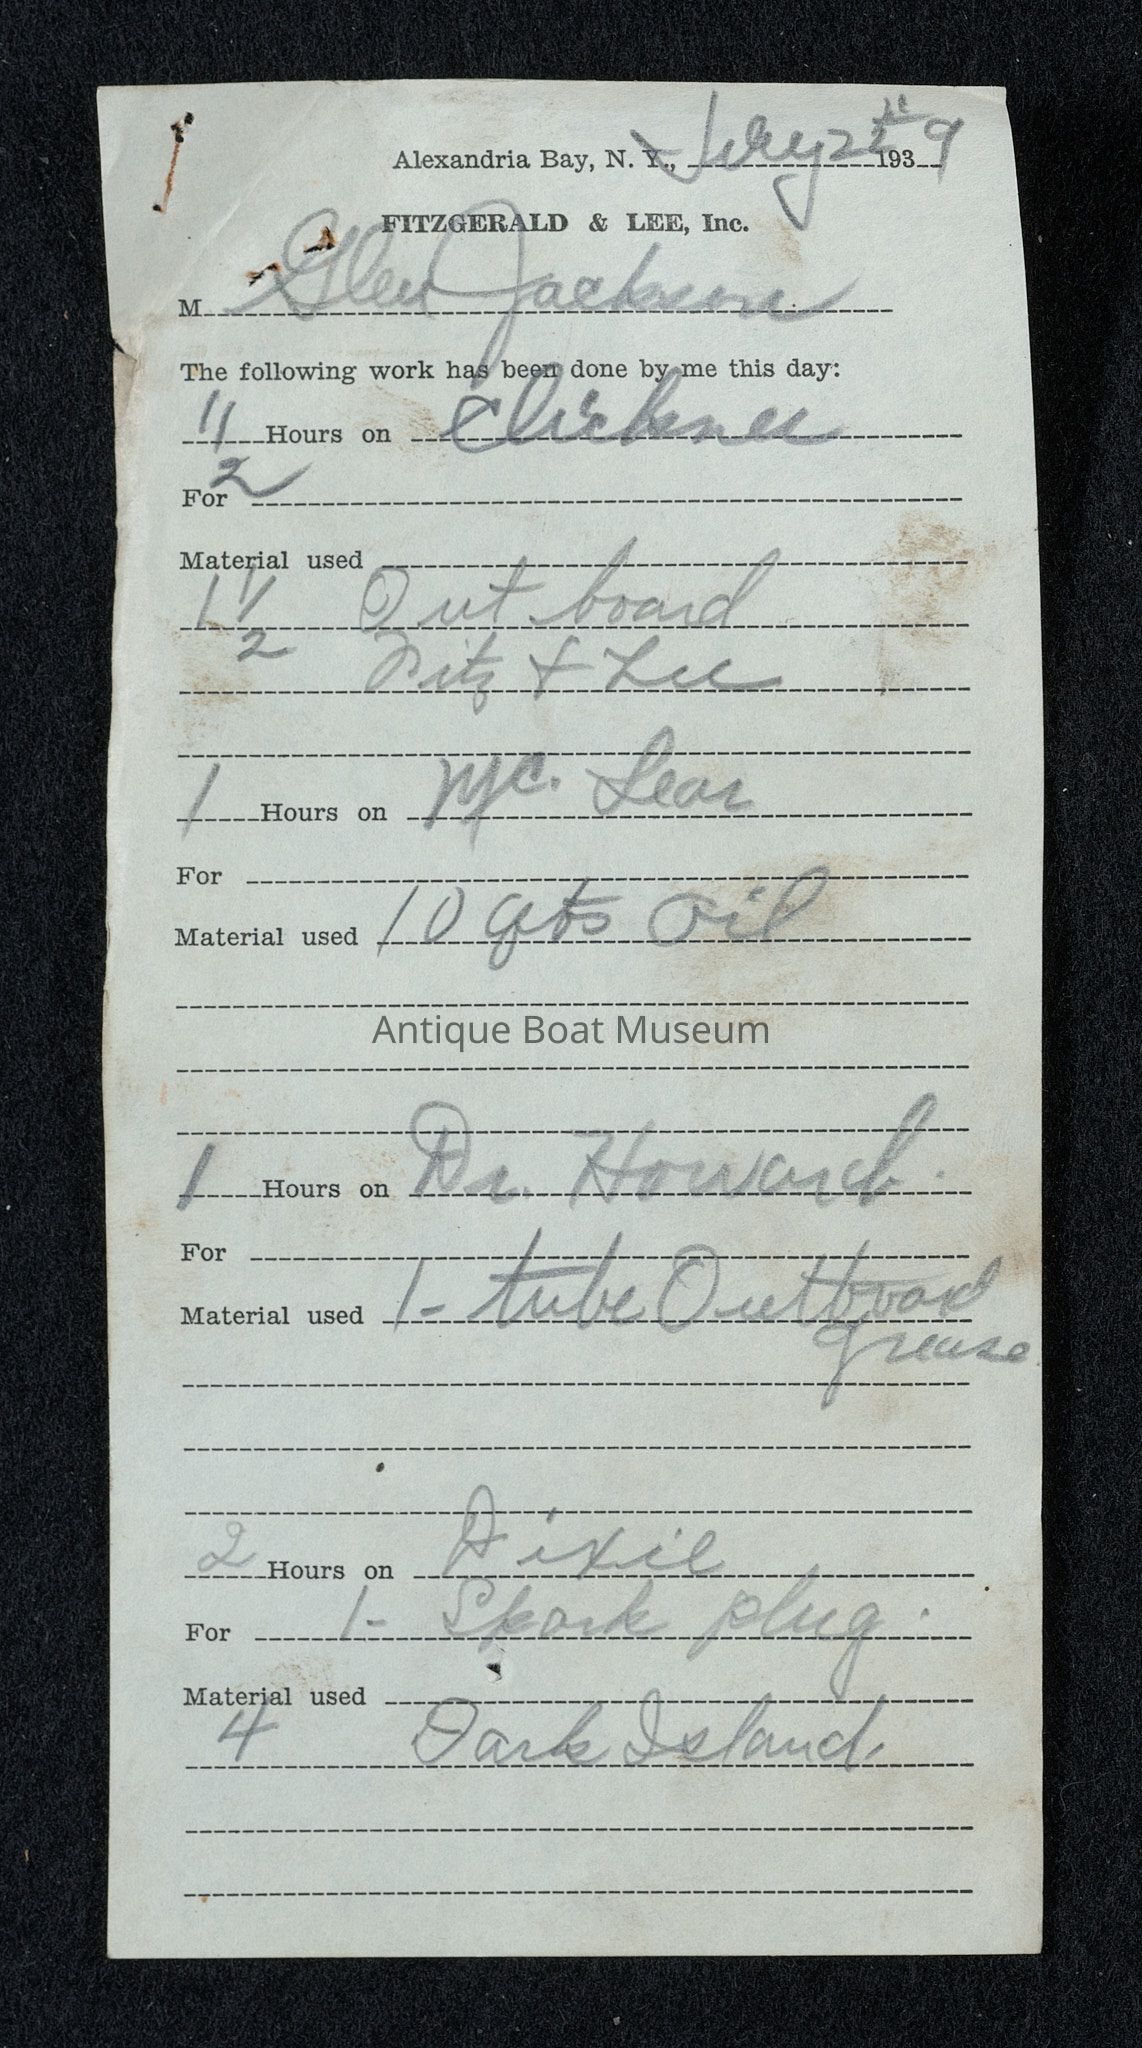 Alexandria Bay, N. Y., July 25th 1939
FITZGERALD & LEE, Inc.
M Glen Jackson
The following work has been done by me this day:
1/2 Hours on
For
Material used
1 1/2 Out board
Fitz & Lee
1 Hours on Mc. Lear
For
Material used 10 qts oil
Antique Boat Museum
1 Hours on Dr. Howard.
For
Material used 1- tube Outboard
grease
2 Hours on Dixie
For 1- Spark plug.
Material used
4 Dark Island.